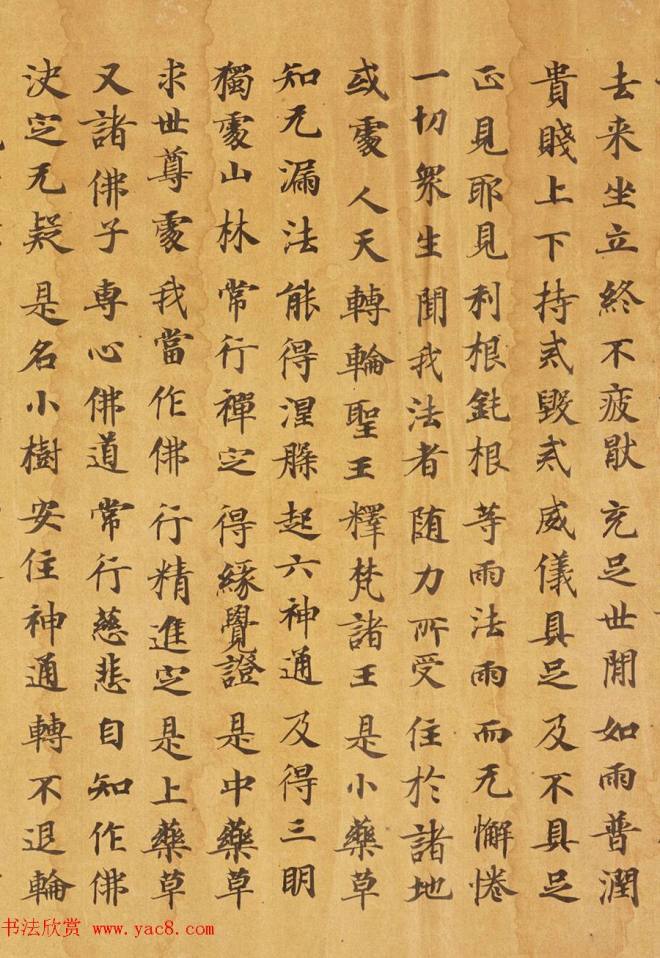 去来坐立終不疲猒充足世間如雨普潤
貴賤上下持戒毀戒威儀具足及不具足
正見耶見利根鈍根等雨法雨而无懈惓
一切衆生聞我法者随力所受住於諸地
或處人天轉輪聖王釋梵諸王是小藥草
知无漏法能得涅槃起六神通及得三明
獨處山林常行禪定得緣覺證是中藥草
求世尊處我當作佛行精進定是上藥草
又諸佛子専心佛道常行慈悲自知作佛
決定无疑是名小樹安住神通轉不退輪
书法欣赏 www.yac8.com